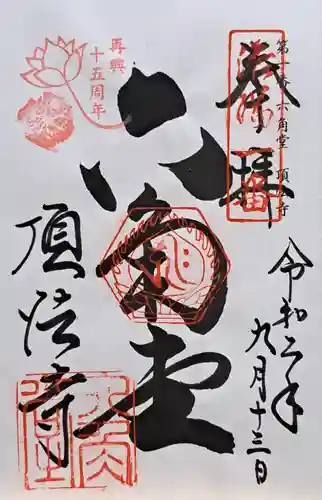 奉拝
第十番 六角堂 頂法寺
令和二年
九月十三日
六角堂
再興
十五周年
頂法寺